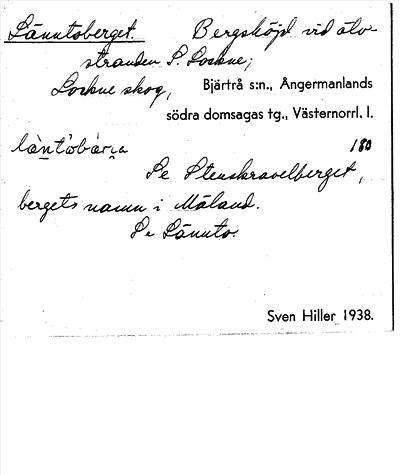 Länntoberget. Bergshöjd vid älv-
stranden S. Lockne;
Lockne skog, Bjärtrå s:n., Ångermanlands
södra domsagas tg., Västernorrl. l.
180
Se Stenskravelberget,
bergets namn i Måland.
Se Lännto.
Sven Hiller 1938.